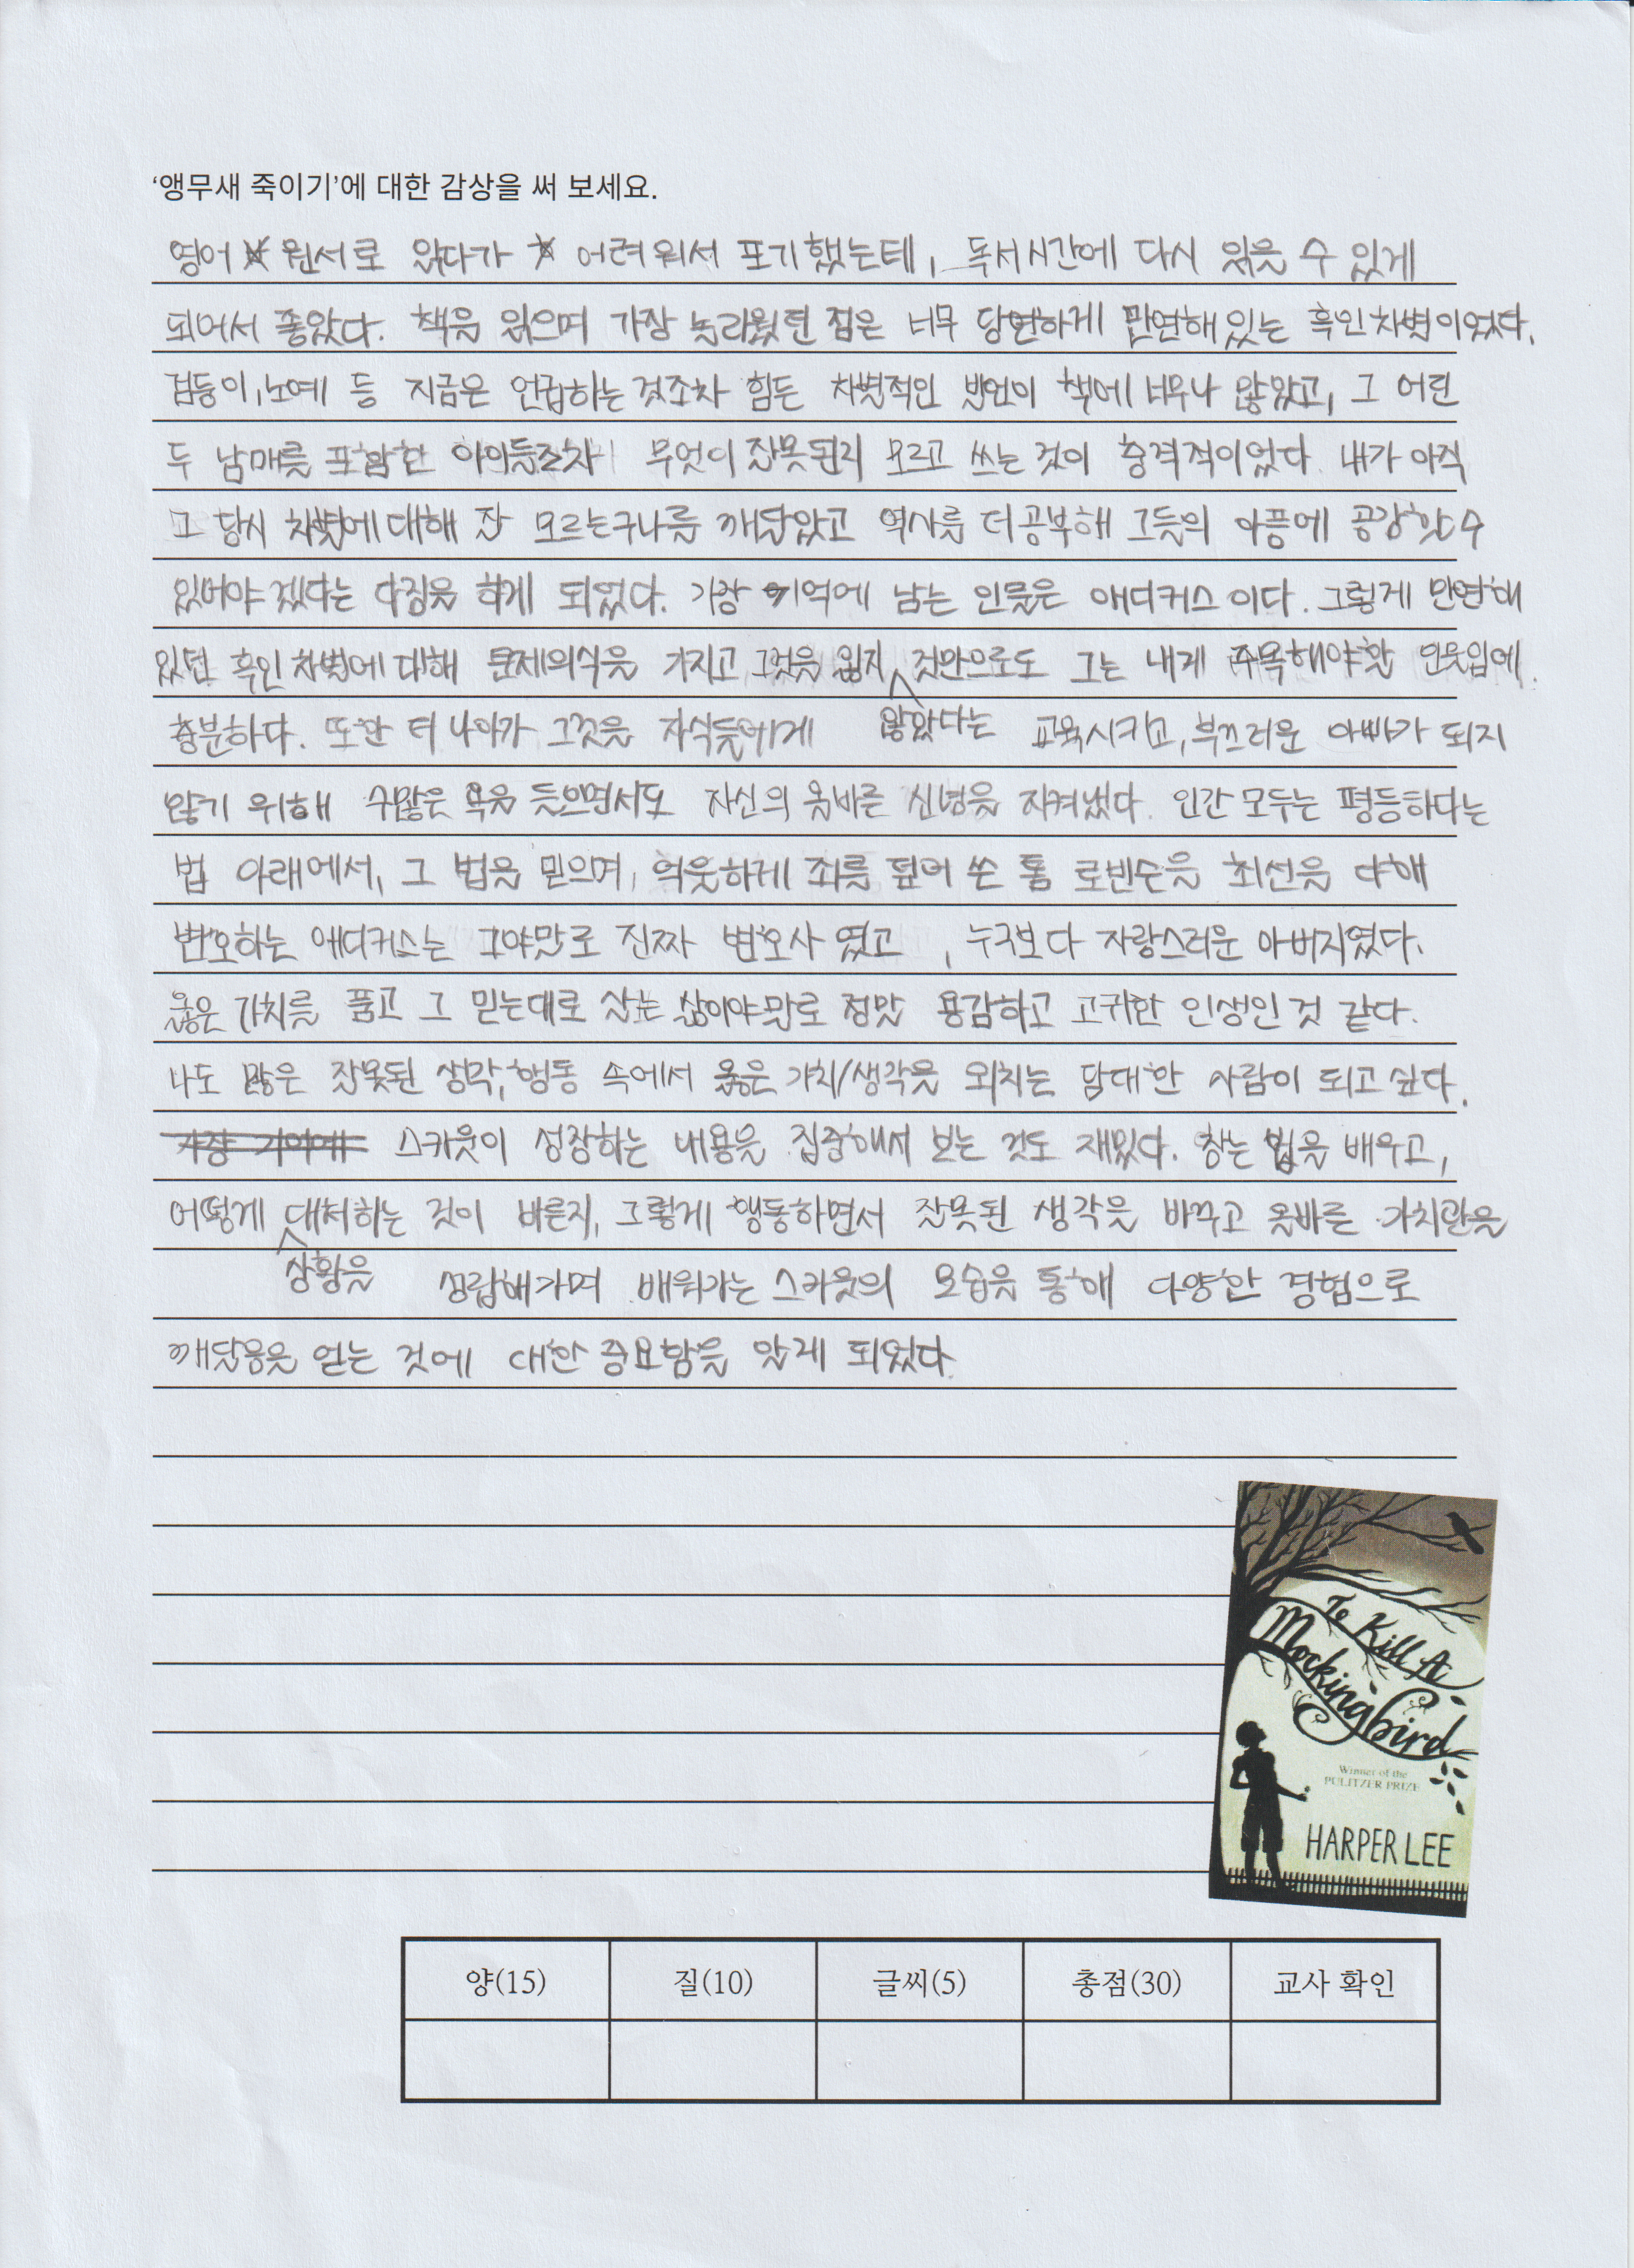 ‘앵무새 죽이기’에 대한 감상을 써 보세요.
영어 원서로 읽다가 어려워서 포기했는데, 독서시간에 다시 읽을 수 있게
되어서 좋았다. 책을 읽으며 가장 놀라웠던 점은 너무 당연하게 만연해있는 흑인차별이었다.
검둥이, 노예 등 지금은 언급하는것조차 힘든 차별적인 발언이 책에 너무나 많았고, 그 어린
두 남매를 포함한 아이들조차 무엇이 잘못된지 모르고 쓰는 것이 충격적이었다. 내가 아직
그 당시 차별에 대해 잘 모르는구나를 깨달았고 역사를 더공부해 그들의 아픔에 공감할수
있어야겠다는 다짐을 하게 되었다. 가장 기억에 남는 인물은 애티커스 이다. 그렇게 만연해
있던 흑인차별에 대해 문제의식을 가지고 그것을 잃지 것만으로도 그는 내게 주목해야할 인물임에
충분하다. 또한 더 나아가 그것을 자식들에게 않았다는 교육시키고, 부끄러운 아빠가 되지
않기 위해 수많은 욕을 들으면서도 자신의 올바른 신념을 지켜냈다. 인간 모두는 평등하다는
법 아래에서, 그 법을 믿으며, 억울하게 죄를 덮어 쓴 톰 로빈슨을 최선을 다해
변호하는 애티커스는 그야말로 진짜 변호사 였고 , 누구보다 자랑스러운 아버지였다.
옳은 가치를 품고 그 믿는대로 사는 삶이야말로 정말 용감하고 고귀한 인생인 것 같다.
나도 많은 잘못된 생각, 행동 속에서 옳은 가치/생각을 외치는 담대한 사람이 되고 싶다.
스카웃이 성장하는 내용을 집중해서 보는 것도 재밌다. 참는 법을 배우고,
어떻게 대처하는 것이 바른지, 그렇게 행동하면서 잘못된 생각을 바꾸고 올바른 가치관을
상황을 성립해가며 배워가는 스카웃의 모습을 통해 다양한 경험으로
깨달음을 얻는 것에 대한 중요함을 알게 되었다.
To Kill A
Mockingbird
Winner of the
PULITZER PRIZE
HARPER LEE
양(15) 질(10) 글씨(5) 총점(30) 교사 확인